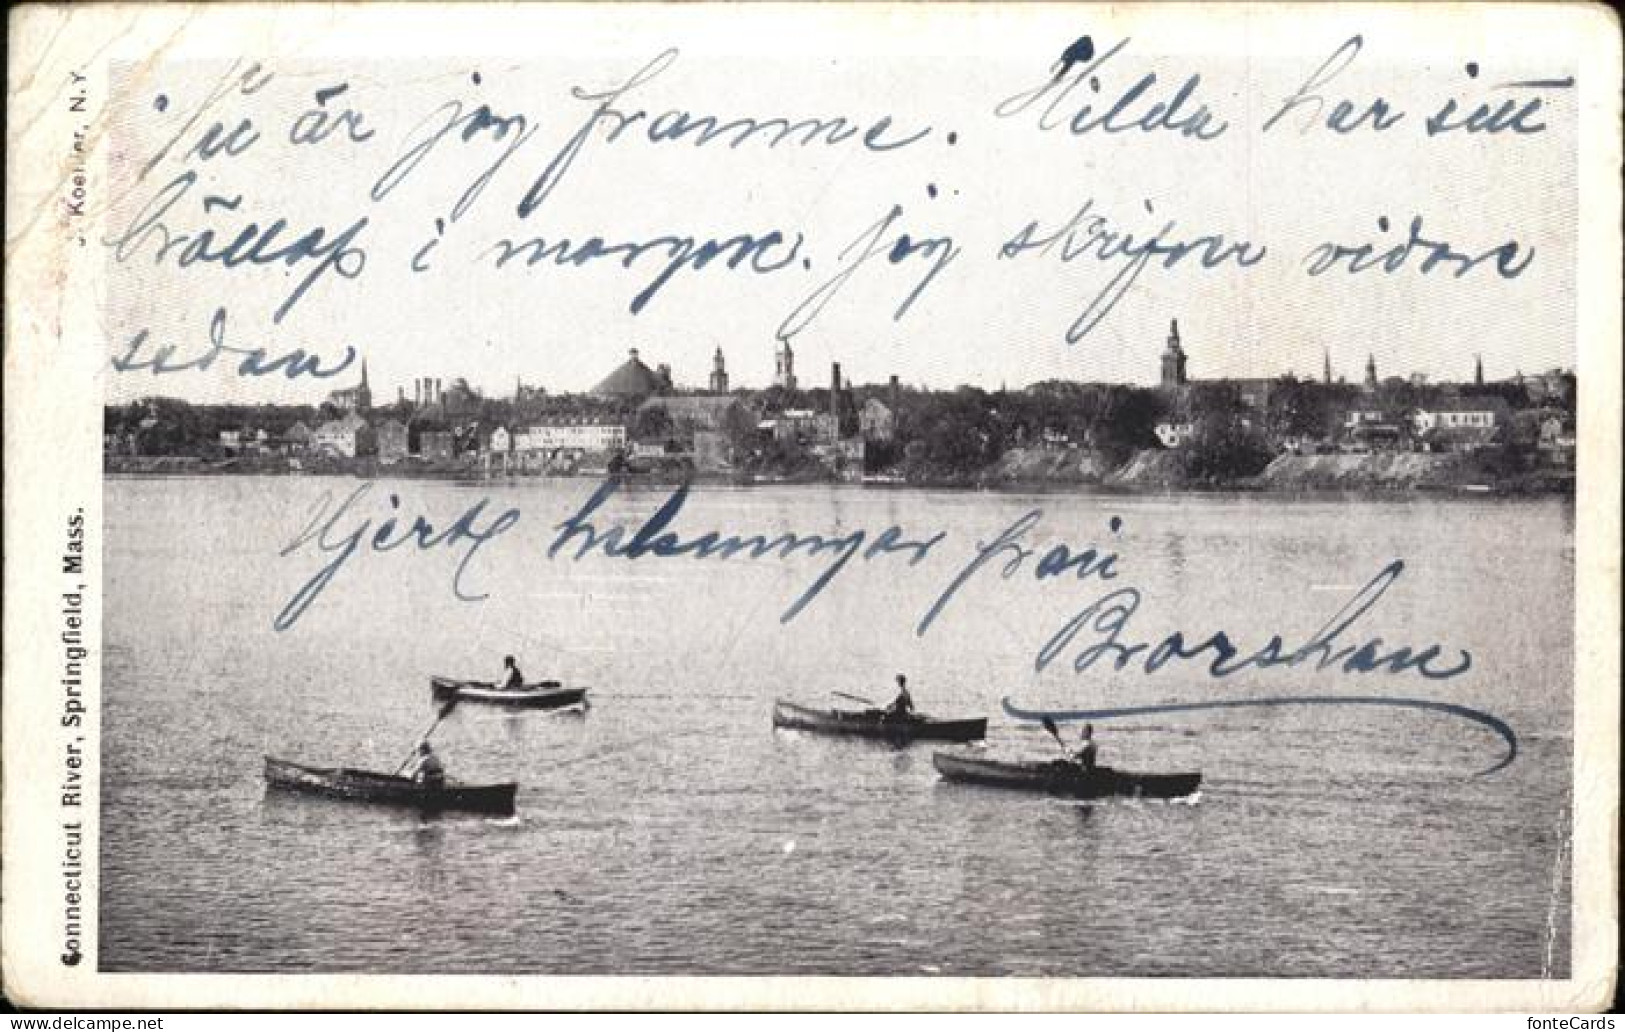 Nu är jag framme. Hilda har sitt
bröllop i morgon. jag skrifver vidare
sedan
Hjertl helsningar från
Brorshan
Connecticut River, Springfield, Mass.
Koehler, N.Y.
fonteCards